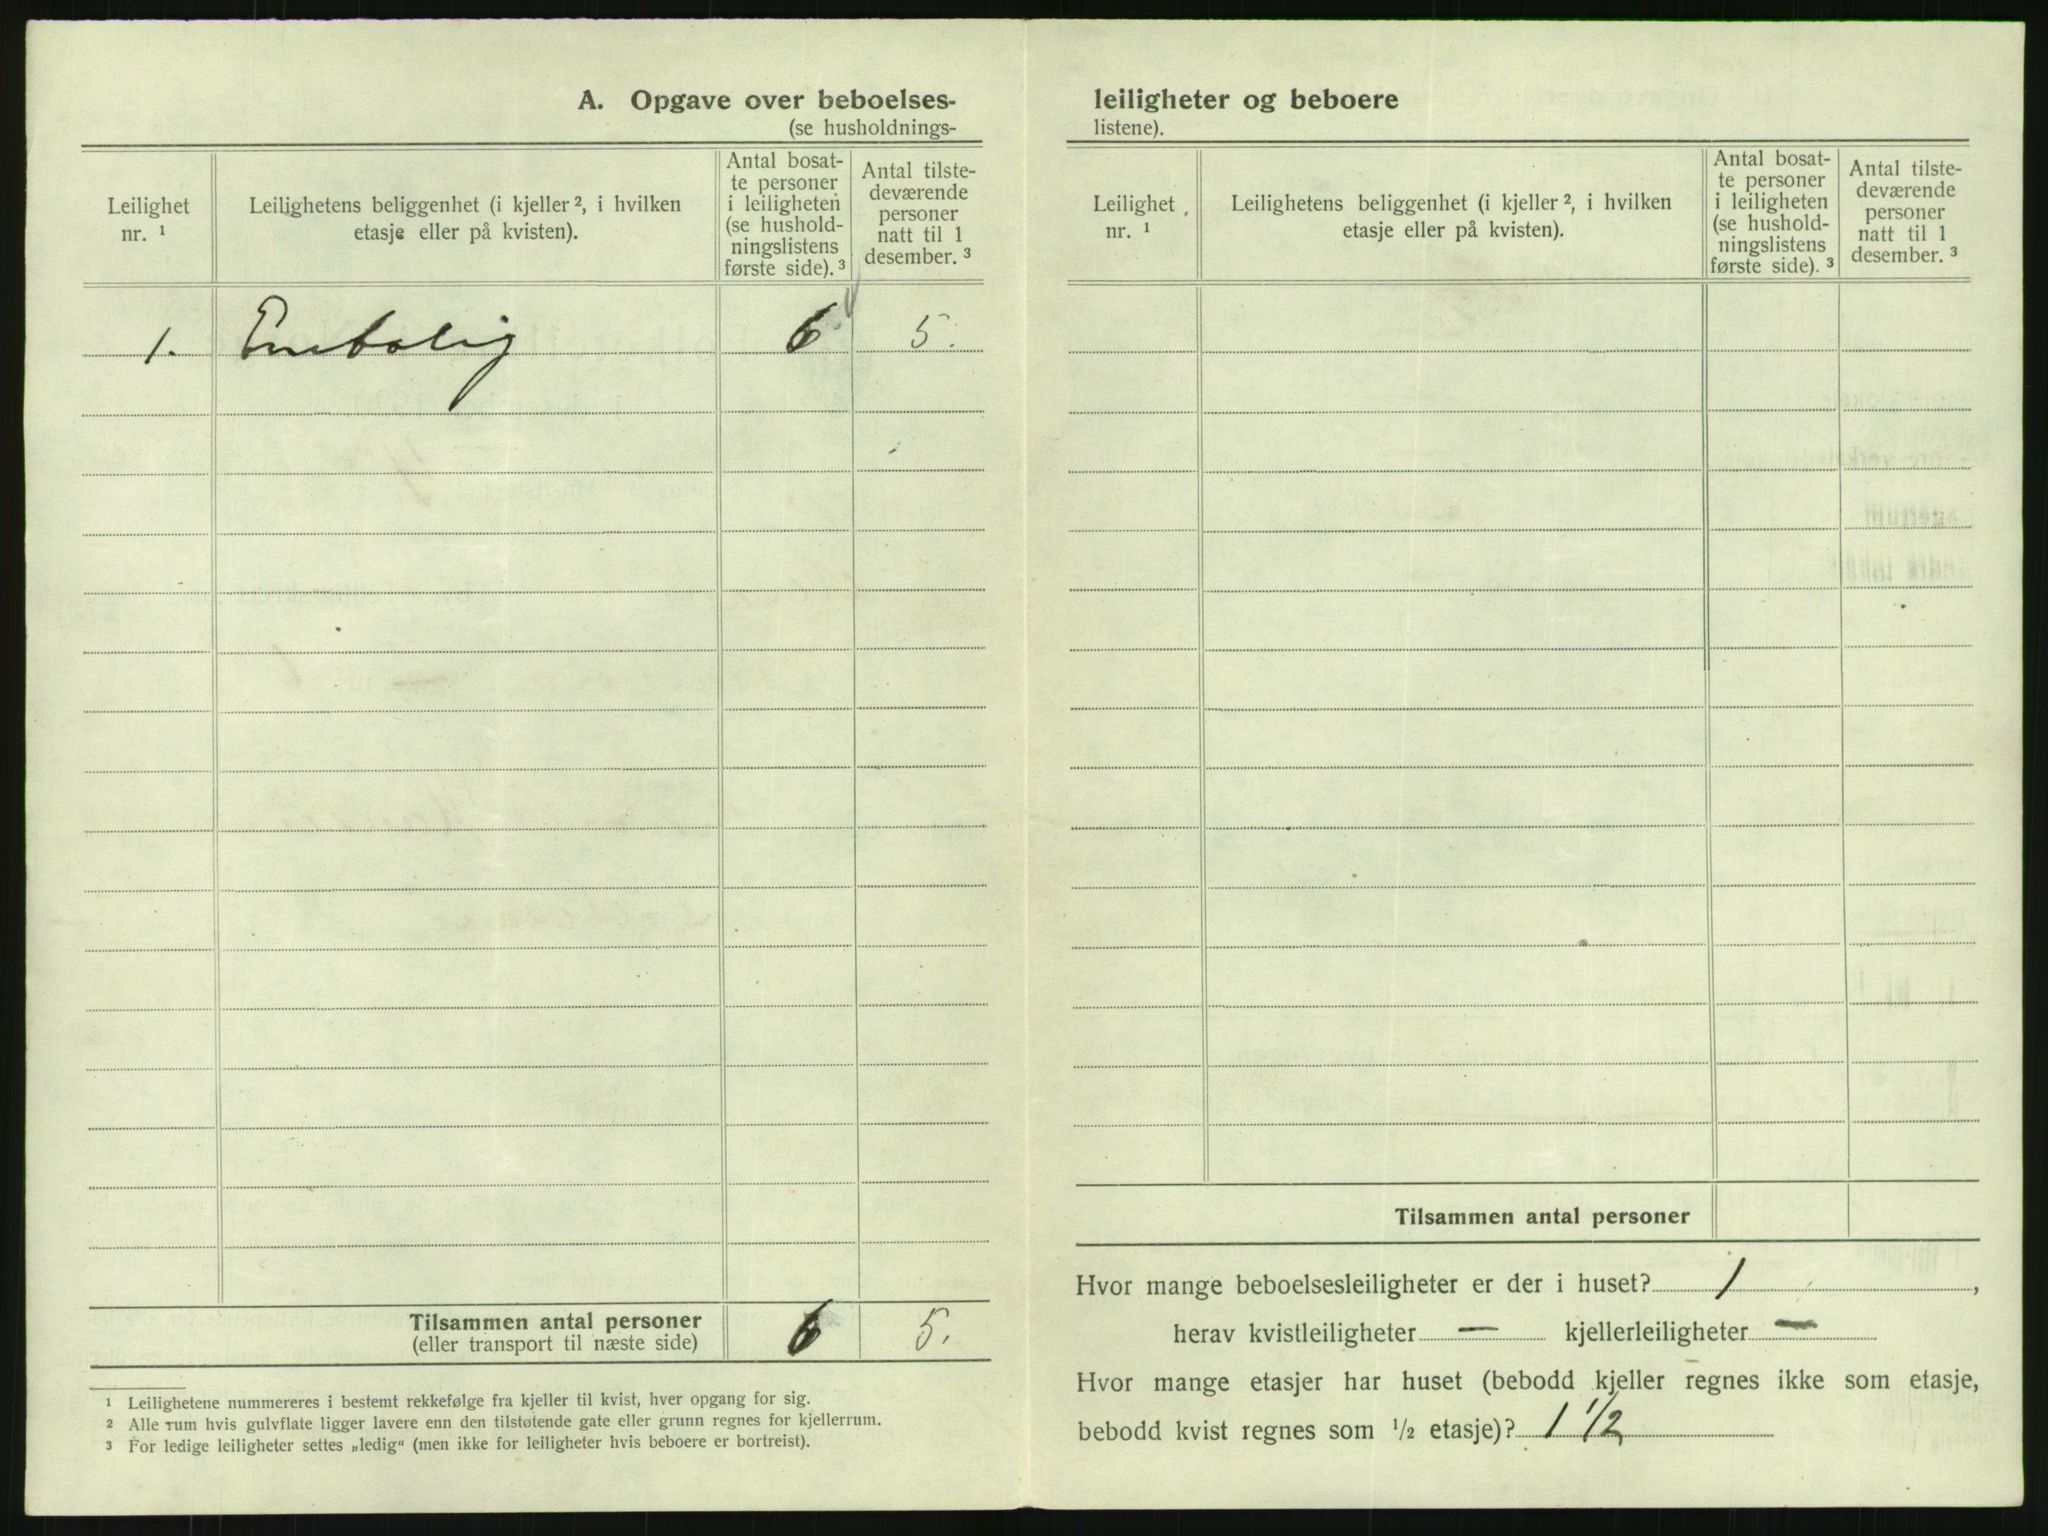 A. Opgave over beboelses-
(se husholdnings-
Leilighet
nr. ¹
Leilighetens beliggenhet (i kjeller ², i hvilken
etasje eller på kvisten).
Antal bosat-
te personer
i leiligheten
(se hushold-
ningslistens
første side). ³
Antal tilste-
deværende
personer
natt til 1
desember. ³
1. Enebolig 6 5.
Tilsammen antal personer 6 5.
(eller transport til næste side)
¹ Leilighetene nummereres i bestemt rekkefølge fra kjeller til kvist, hver opgang for sig.
² Alle rum hvis gulvflate ligger lavere enn den tilstøtende gate eller grunn regnes for kjellerrum.
³ For ledige leiligheter settes „ledig" (men ikke for leiligheter hvis beboere er bortreist).
leiligheter og beboere
listene).
Leilighet
nr. ¹
Leilighetens beliggenhet (i kjeller ², i hvilken
etasje eller på kvisten).
Antal bosat-
te personer
i leiligheten
(se hushold-
ningslistens
første side). ³
Antal tilste-
deværende
personer
natt til 1
desember. ³
Tilsammen antal personer
Hvor mange beboelsesleiligheter er der i huset? 1 ,
herav kvistleiligheter — kjellerleiligheter —
Hvor mange etasjer har huset (bebodd kjeller regnes ikke som etasje,
bebodd kvist regnes som ½ etasje)? 1 1/2